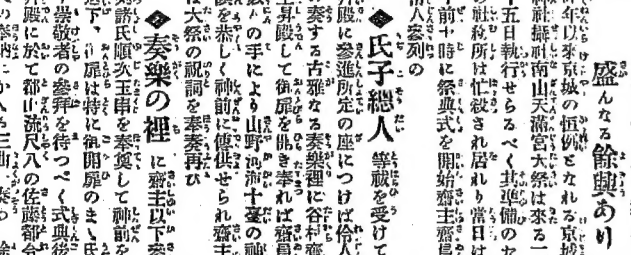 盛んなる餘興あり
昨年以來京城の恒例となれる京城
神社攝社南山天滿宮大祭は來る二
十五日執行せらるべく其準備のた
め社務所は忙殺され居れり當日は
午前十時に祭典式を開始齋主齋員
伶人參列の
◆氏子總人 等祓を受けて
昇殿に參進所定の座につけば伶人
の奏する古雅なる奏樂裡に谷村齋
主昇殿して御扉を開き奉れば齋員
の手により山野河海十臺の神
饌を恭しく神前に傳供せられ齋主
は大祭の祝詞を奉奏再び
◆奏樂の裡 に齋主以下參
列諸氏順次玉串を奉奠して神前を
退下 扉は特に御開扉のまゝ氏
子崇敬者の參拜を待つべく式典後
昇殿に於て都山流尺八の佐藤都令
の奉納にかゝる三曲 奏 餘